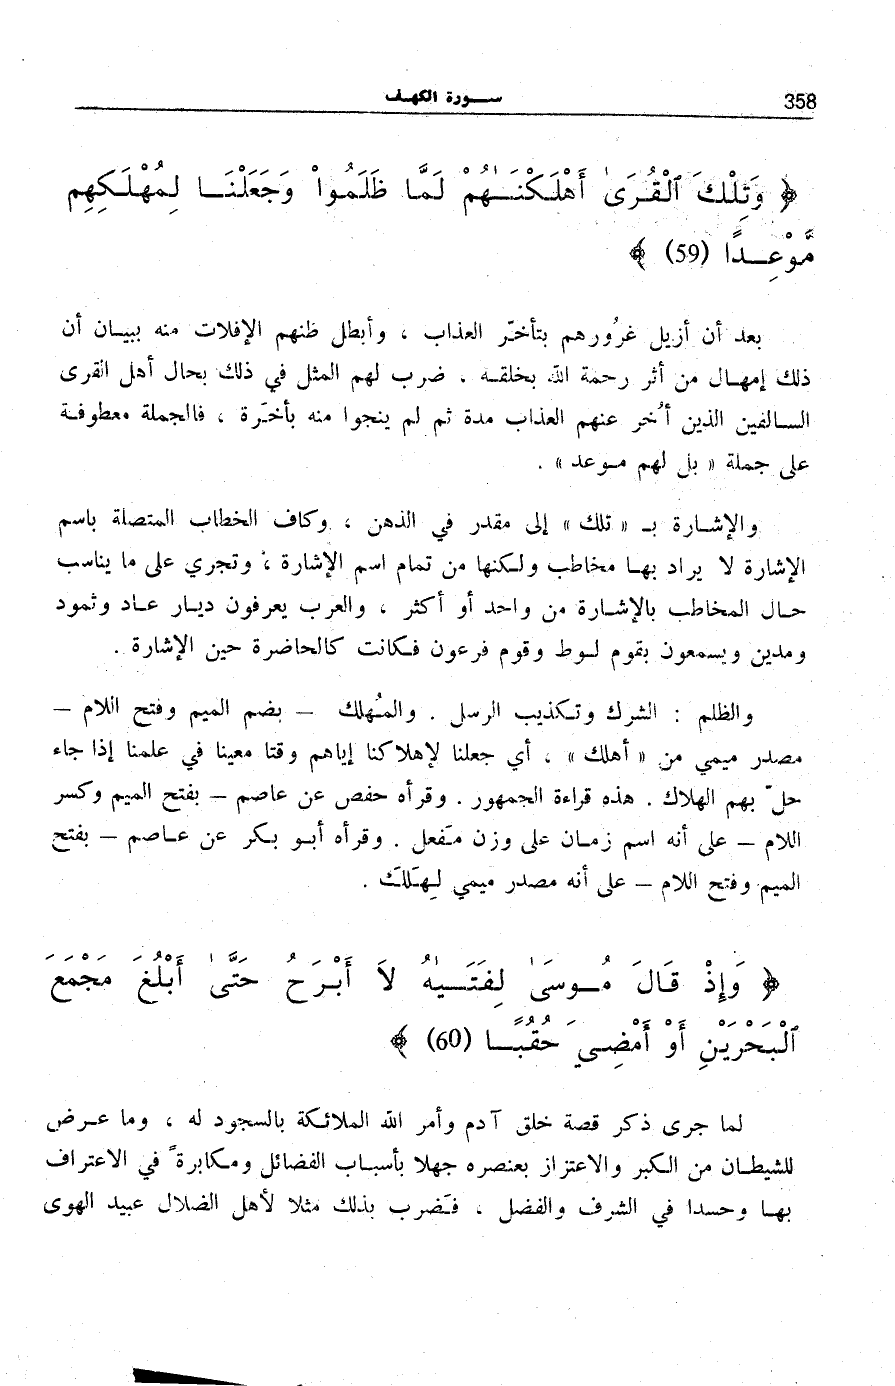 358
سـورة الكهف
﴿ وَتِلْكَ ٱلْقُرَىٰ أَهْلَكْنَـٰهُمْ لَمَّا ظَلَمُوا۟ وَجَعَلْنَـا لِمُهْلَكِهِم
مَّوْعِـدًا (59) ﴾
بعد أن أزيل غرُورهم بتأخّر العذاب ، وأبطل ظنهم الإفلات منه ببيـان أن
ذلك إمهـال من أثر رحمة الله بخلقـه . ضرب لهم المثل في ذلك بحال أهل القرى
السـالفين الذين أُخر عنهم العذاب مدة ثم لم ينجوا منه بأخَرة ، فالجملة معطوفـة
على جملة « بل لهم مـوعد » .
والإشـارة بـ « تلك » إلى مقدر في الذهن ، وكاف الخطاب المتصلة باسم
الإشارة لا يراد بهـا مخاطب ولـكنها من تمام اسم الإشارة ، وتجري على ما يناسب
حـال المخاطب بالإشـارة من واحد أو أكثر ، والعرب يعرفون ديـار عـاد وثمود
ومدين ويسمعون بقوم لـوط وقوم فرعون فـكانت كالحاضرة حين الإشارة .
والظلم : الشرك وتـكذيب الرسل . والمُهلك — بضم الميم وفتح اللام —
مصدر ميمي من « أهلك » ، أي جعلنا لإهلاكنا إياهم وقتا معينا في علمنا إذا جاء
حلّ بهم الهلاك . هذه قراءة الجمهور . وقرأه حفص عن عاصم — بفتح الميم وكسر
اللام — على أنه اسم زمـان على وزن مَفعل . وقرأه أبـو بـكر عن عـاصم — بفتح
الميم وفتح اللام — على أنه مصدر ميمي لِهَلَك .
﴿ وَإِذْ قَالَ مُـوسَىٰ لِفَتَـىٰهُ لَا أَبْـرَحُ حَتَّىٰ أَبْلُغَ مَجْمَعَ
ٱلْبَحْرَيْنِ أَوْ أَمْضِـيَ حُقُبًـا (60) ﴾
لما جرى ذكر قصة خلق آدم وأمر الله الملائـكة بالسجود له ، وما عـرض
للشيطـان من الـكبر والاعتزاز بعنصره جهلا بأسبـاب الفضائل ومـكابرة في الاعتراف
بهـا وحسدا في الشرف والفضل ، فـضرب بذلك مثلا لأهل الضلال عبيد الهوى